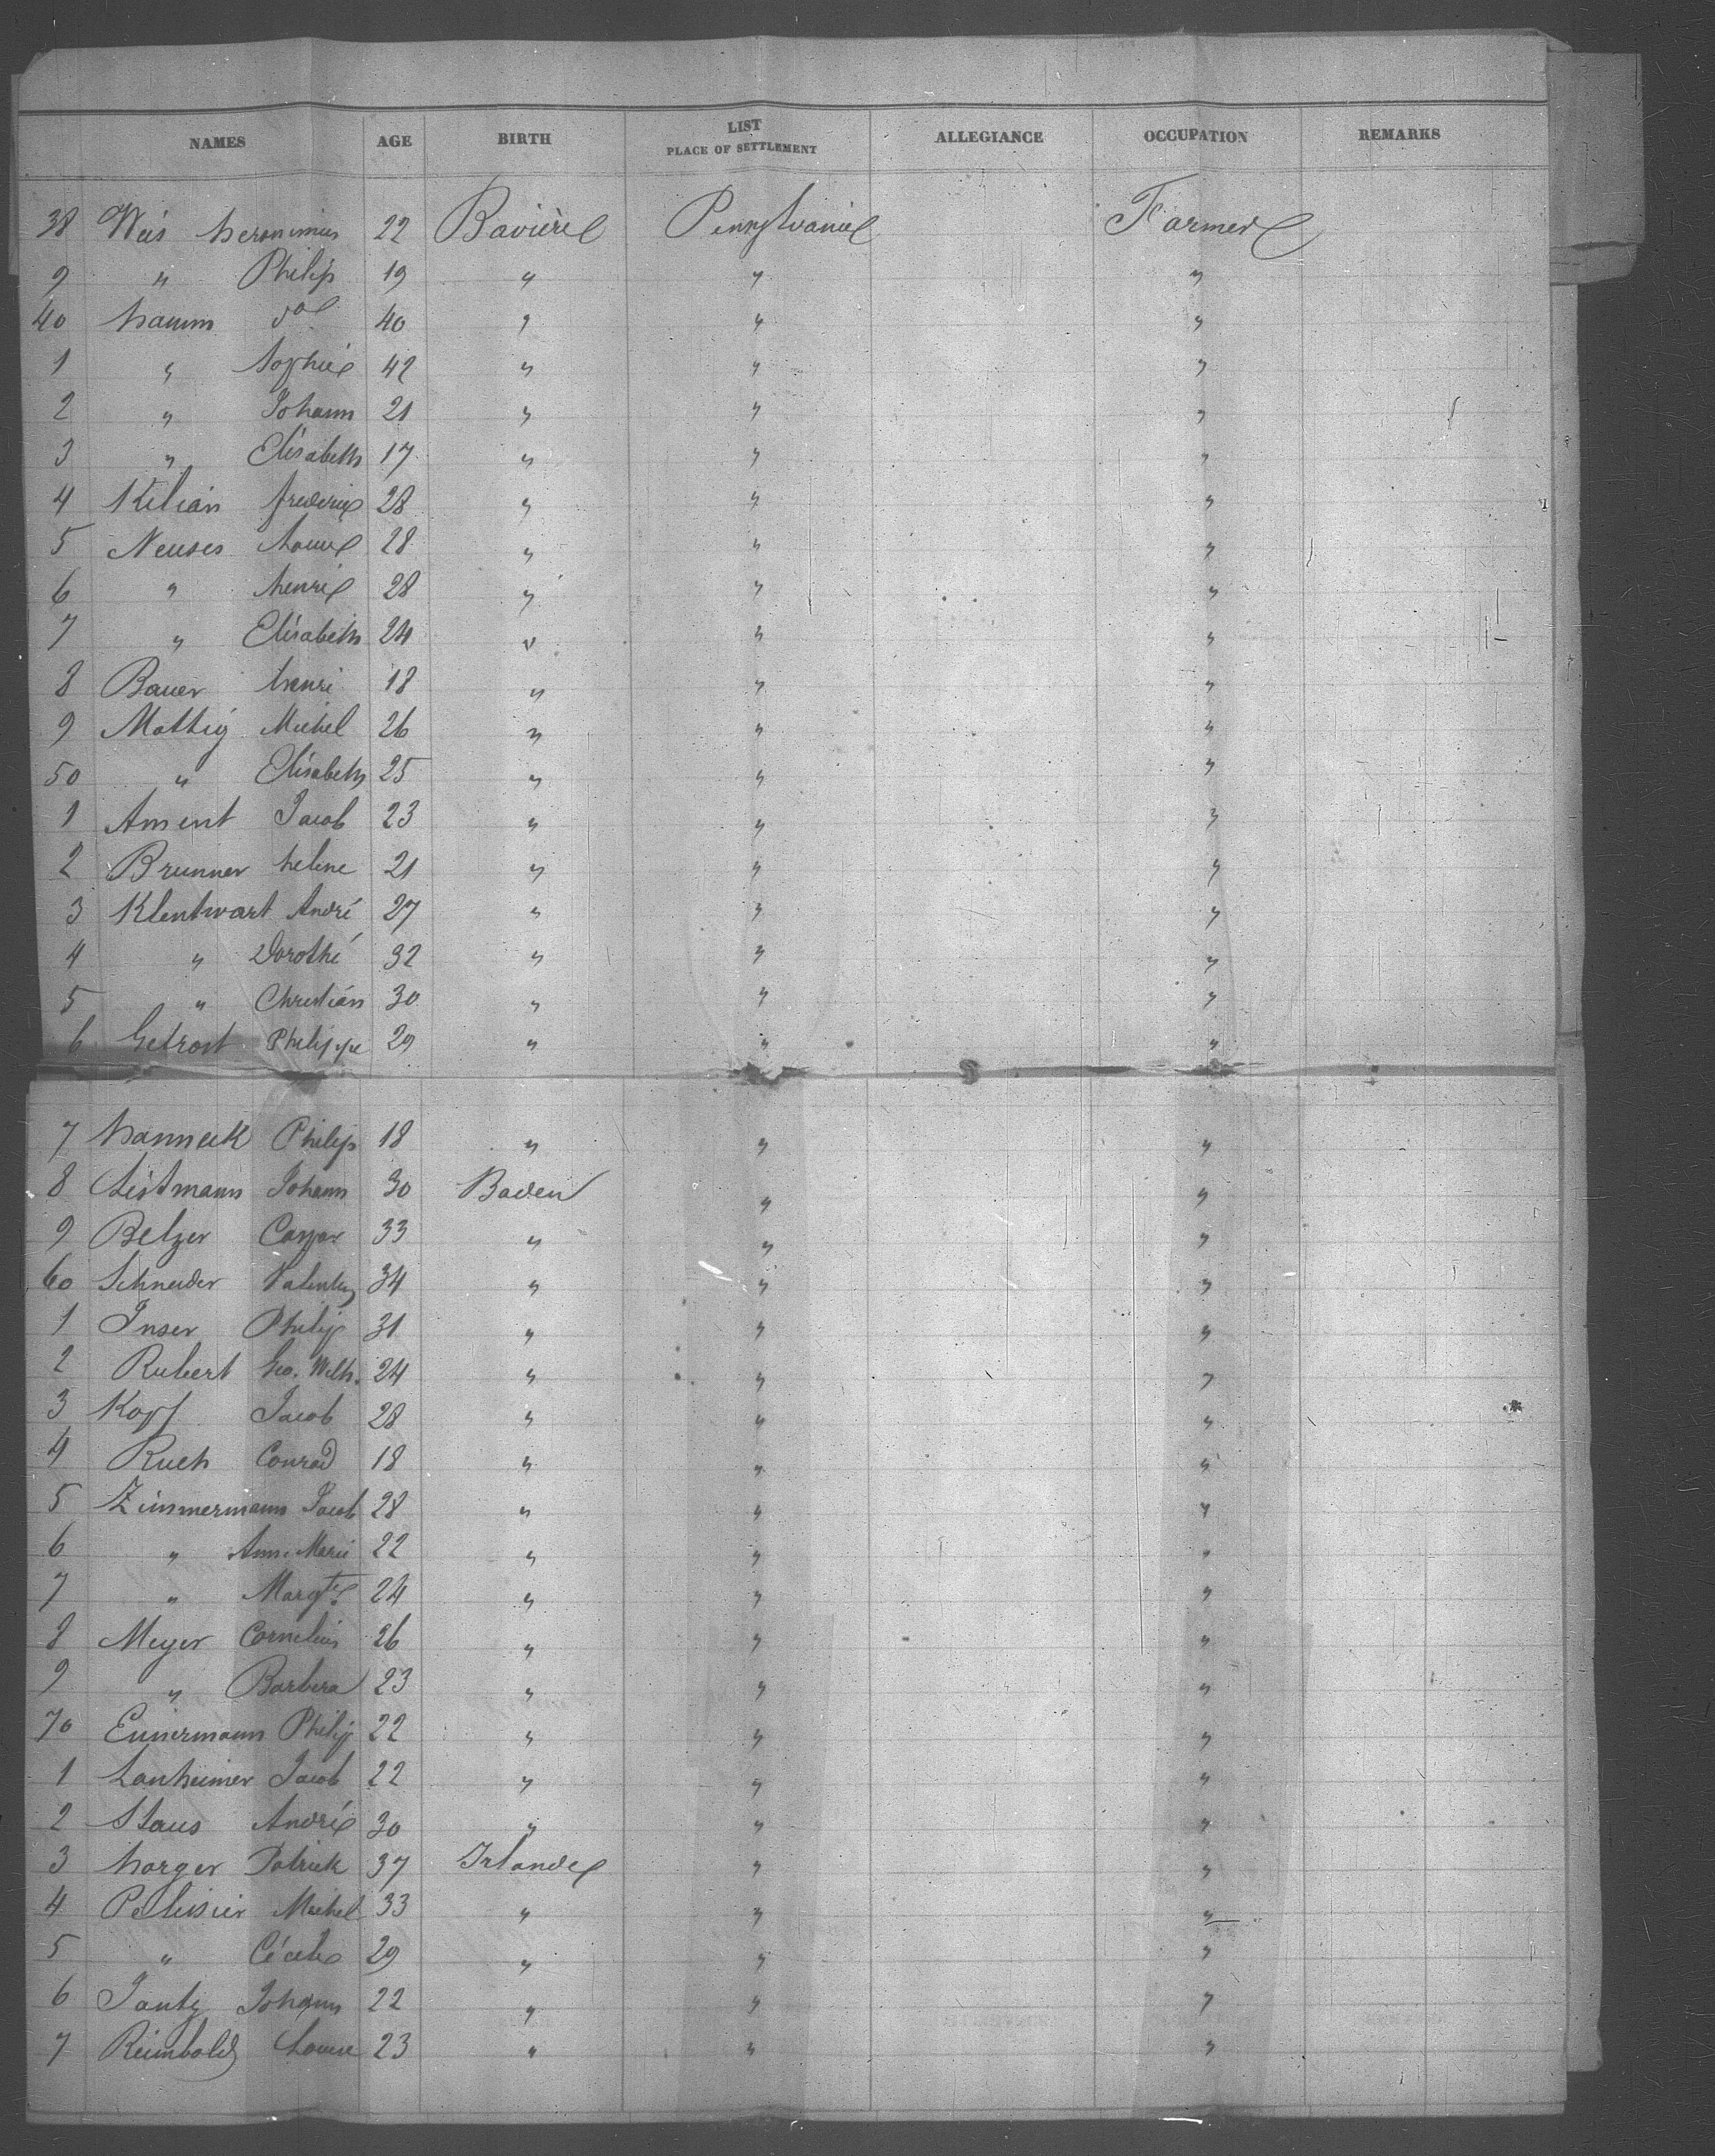 NAMES AGE BIRTH LIST PLACE OF SETTLEMENT ALLEGIANCE OCCUPATION REMARKS
38 Weis Heronimus 22 Bavière Pennsylvanie Farmer
9 " Philip 19 " " "
40 Hamm 40 " " "
1 " Sophie 42 " " "
2 " Johann 21 " " "
3 " Elisabeth 17 " " "
4 Kilian frederic 28 " " "
5 Neuses Louise 28 " " "
6 " henri 28 " " "
7 " Elisabeth 24 " " "
8 Bauer henri 18 " " "
9 Mattig Michel 26 " " "
50 " Elisabeth 25 " " "
1 Ament Jacob 23 " " "
2 Brunner helene 21 " " "
3 Klentwart André 27 " " "
4 " Dorothé 32 " " "
5 " Christian 30 " " "
6 Getrost Philippe 29 " " "
7 Hanneck Philip 18 " " "
8 Listmann Johann 30 Baden " "
9 Belzer Caspar 33 " " "
60 Schneider Valentin 34 " " "
1 Inser Philip 31 " " "
2 Rubert Geo. Wilh. 24 " " "
3 Kopf Jacob 28 " " "
4 Ruch Conrad 18 " " "
5 Zimmermann Jacob 28 " " "
6 " Ann. Marie 22 " " "
7 " Margte 24 " " "
8 Meyer Cornelius 26 " " "
9 " Barbera 23 " " "
70 Philip 22 " " "
1 Lanheimer Jacob 22 " " "
2 Staus André 30 " " "
3 Harger Patrick 37 Irlande " "
4 Pelissier Michel 33 " " "
5 " Cécile 29 " " "
6 Jantz Johann 22 " " "
7 Reimbold Louise 23 " " "